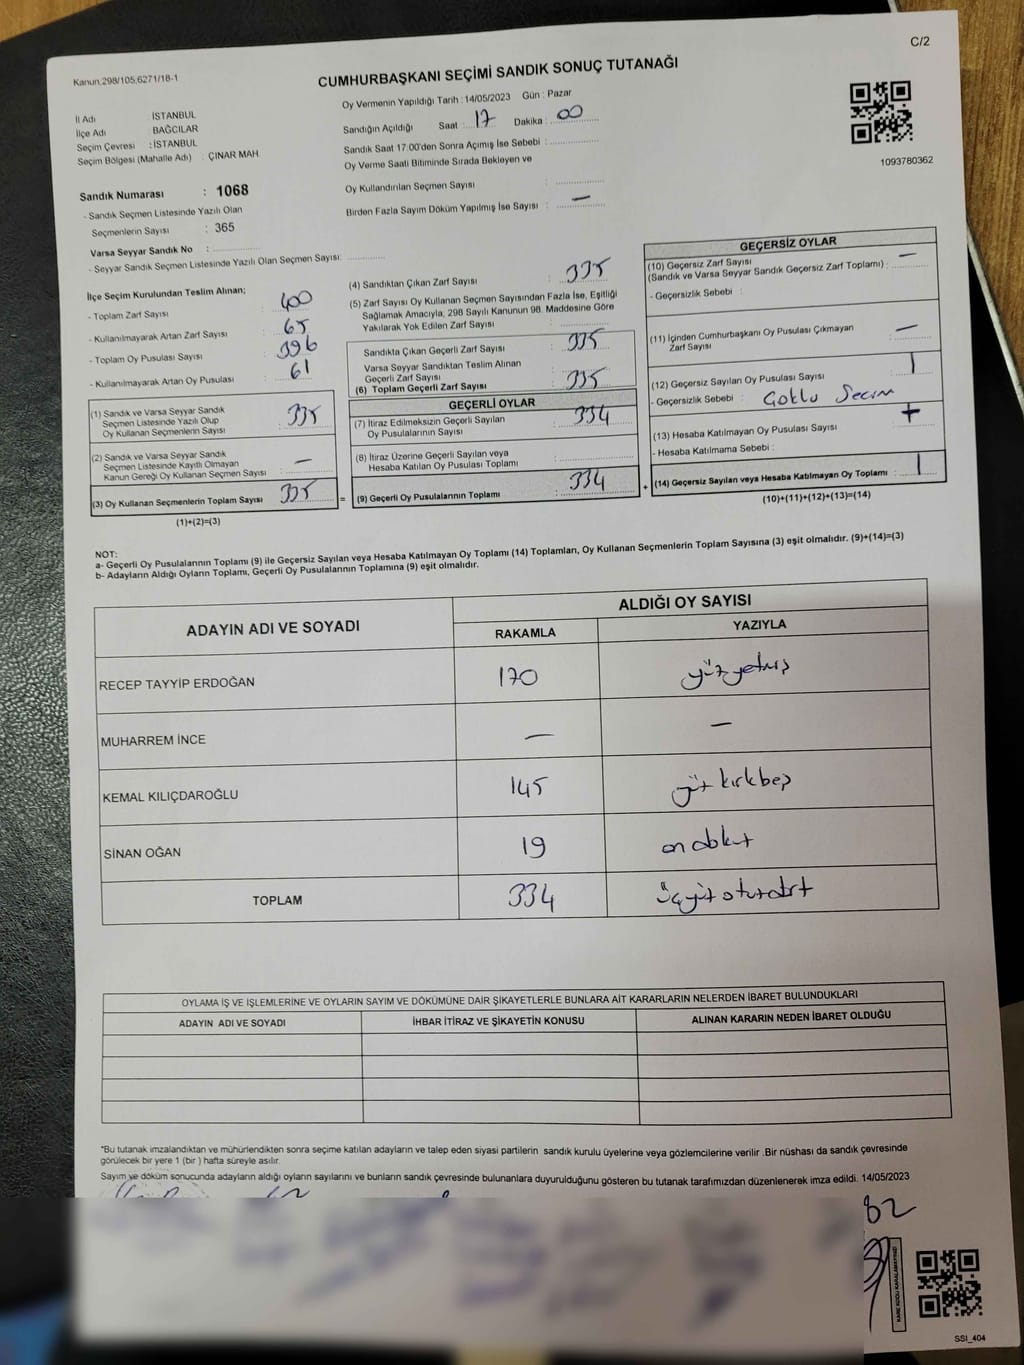 C/2
Kanun.298/105,6271/18-1
CUMHURBAŞKANI SEÇİMİ SANDIK SONUÇ TUTANAĞI
İl Adı : İSTANBUL
İlçe Adı : BAĞCILAR
Seçim Çevresi : İSTANBUL
Seçim Bölgesi (Mahalle Adı) : ÇINAR MAH.
Sandık Numarası : 1068
- Sandık Seçmen Listesinde Yazılı Olan
Seçmenlerin Sayısı : 365
Varsa Seyyar Sandık No :
- Seyyar Sandık Seçmen Listesinde Yazılı Olan Seçmen Sayısı:
Oy Vermenin Yapıldığı Tarih : 14/05/2023 Gün : Pazar
Sandığın Açıldığı Saat : 17 Dakika : 00
Sandık Saat 17:00'den Sonra Açımış İse Sebebi :
Oy Verme Saati Bitiminde Sırada Bekleyen ve
Oy Kullandırılan Seçmen Sayısı :
Birden Fazla Sayım Döküm Yapılmış İse Sayısı : —
1093780362
İlçe Seçim Kurulundan Teslim Alınan;
- Toplam Zarf Sayısı : 400
- Kullanılmayarak Artan Zarf Sayısı : 65
- Toplam Oy Pusulası Sayısı : 396
- Kullanılmayarak Artan Oy Pusulası : 61
(1) Sandık ve Varsa Seyyar Sandık
Seçmen Listesinde Yazılı Olup
Oy Kullanan Seçmenlerin Sayısı : 335
(2) Sandık ve Varsa Seyyar Sandık
Seçmen Listesinde Kayıtlı Olmayan
Kanun Gereği Oy Kullanan Seçmen Sayısı : —
(3) Oy Kullanan Seçmenlerin Toplam Sayısı : 335 =
(1)+(2)=(3)
(4) Sandıktan Çıkan Zarf Sayısı : 335
(5) Zarf Sayısı Oy Kullanan Seçmen Sayısından Fazla İse, Eşitliği
Sağlamak Amacıyla, 298 Sayılı Kanunun 98. Maddesine Göre
Yakılarak Yok Edilen Zarf Sayısı :
Sandıkta Çıkan Geçerli Zarf Sayısı : 335
Varsa Seyyar Sandıktan Teslim Alınan
Geçerli Zarf Sayısı :
(6) Toplam Geçerli Zarf Sayısı : 335
GEÇERLİ OYLAR
(7) İtiraz Edilmeksizin Geçerli Sayılan
Oy Pusulalarının Sayısı : 334
(8) İtiraz Üzerine Geçerli Sayılan veya
Hesaba Katılan Oy Pusulası Toplamı :
(9) Geçerli Oy Pusulalarının Toplamı : 334 +
GEÇERSİZ OYLAR
(10) Geçersiz Zarf Sayısı
(Sandık ve Varsa Seyyar Sandık Geçersiz Zarf Toplamı) : —
- Geçersizlik Sebebi :
(11) İçinden Cumhurbaşkanı Oy Pusulası Çıkmayan
Zarf Sayısı : —
(12) Geçersiz Sayılan Oy Pusulası Sayısı : 1
- Geçersizlik Sebebi : Çoklu Seçim
(13) Hesaba Katılmayan Oy Pusulası Sayısı :
- Hesaba Katılmama Sebebi :
(14) Geçersiz Sayılan veya Hesaba Katılmayan Oy Toplamı : 1
(10)+(11)+(12)+(13)=(14)
NOT:
a- Geçerli Oy Pusulalarının Toplamı (9) ile Geçersiz Sayılan veya Hesaba Katılmayan Oy Toplamı (14) Toplamları, Oy Kullanan Seçmenlerin Toplam Sayısına (3) eşit olmalıdır. (9)+(14)=(3)
b- Adayların Aldığı Oyların Toplamı, Geçerli Oy Pusulalarının Toplamına (9) eşit olmalıdır.
ADAYIN ADI VE SOYADI ALDIĞI OY SAYISI
RAKAMLA YAZIYLA
RECEP TAYYİP ERDOĞAN 170 yüzyetmiş
MUHARREM İNCE — —
KEMAL KILIÇDAROĞLU 145 yüz kırkbeş
SİNAN OĞAN 19 on dokuz
TOPLAM 334 üçyüz otuzdört
OYLAMA İŞ VE İŞLEMLERİNE VE OYLARIN SAYIM VE DÖKÜMÜNE DAİR ŞİKAYETLERLE BUNLARA AİT KARARLARIN NELERDEN İBARET BULUNDUKLARI
ADAYIN ADI VE SOYADI İHBAR İTİRAZ VE ŞİKAYETİN KONUSU ALINAN KARARIN NEDEN İBARET OLDUĞU
*Bu tutanak imzalandıktan ve mühürlendikten sonra seçime katılan adayların ve talep eden siyasi partilerin sandık kurulu üyelerine veya gözlemcilerine verilir .Bir nüshası da sandık çevresinde
görülecek bir yere 1 (bir ) hafta süreyle asılır.
Sayım ve döküm sonucunda adayların aldığı oyların sayılarını ve bunların sandık çevresinde bulunanlara duyurulduğunu gösteren bu tutanak tarafımızdan düzenlenerek imza edildi. 14/05/2023
KARE KODU KARALAMAYINIZ!
SSI_404